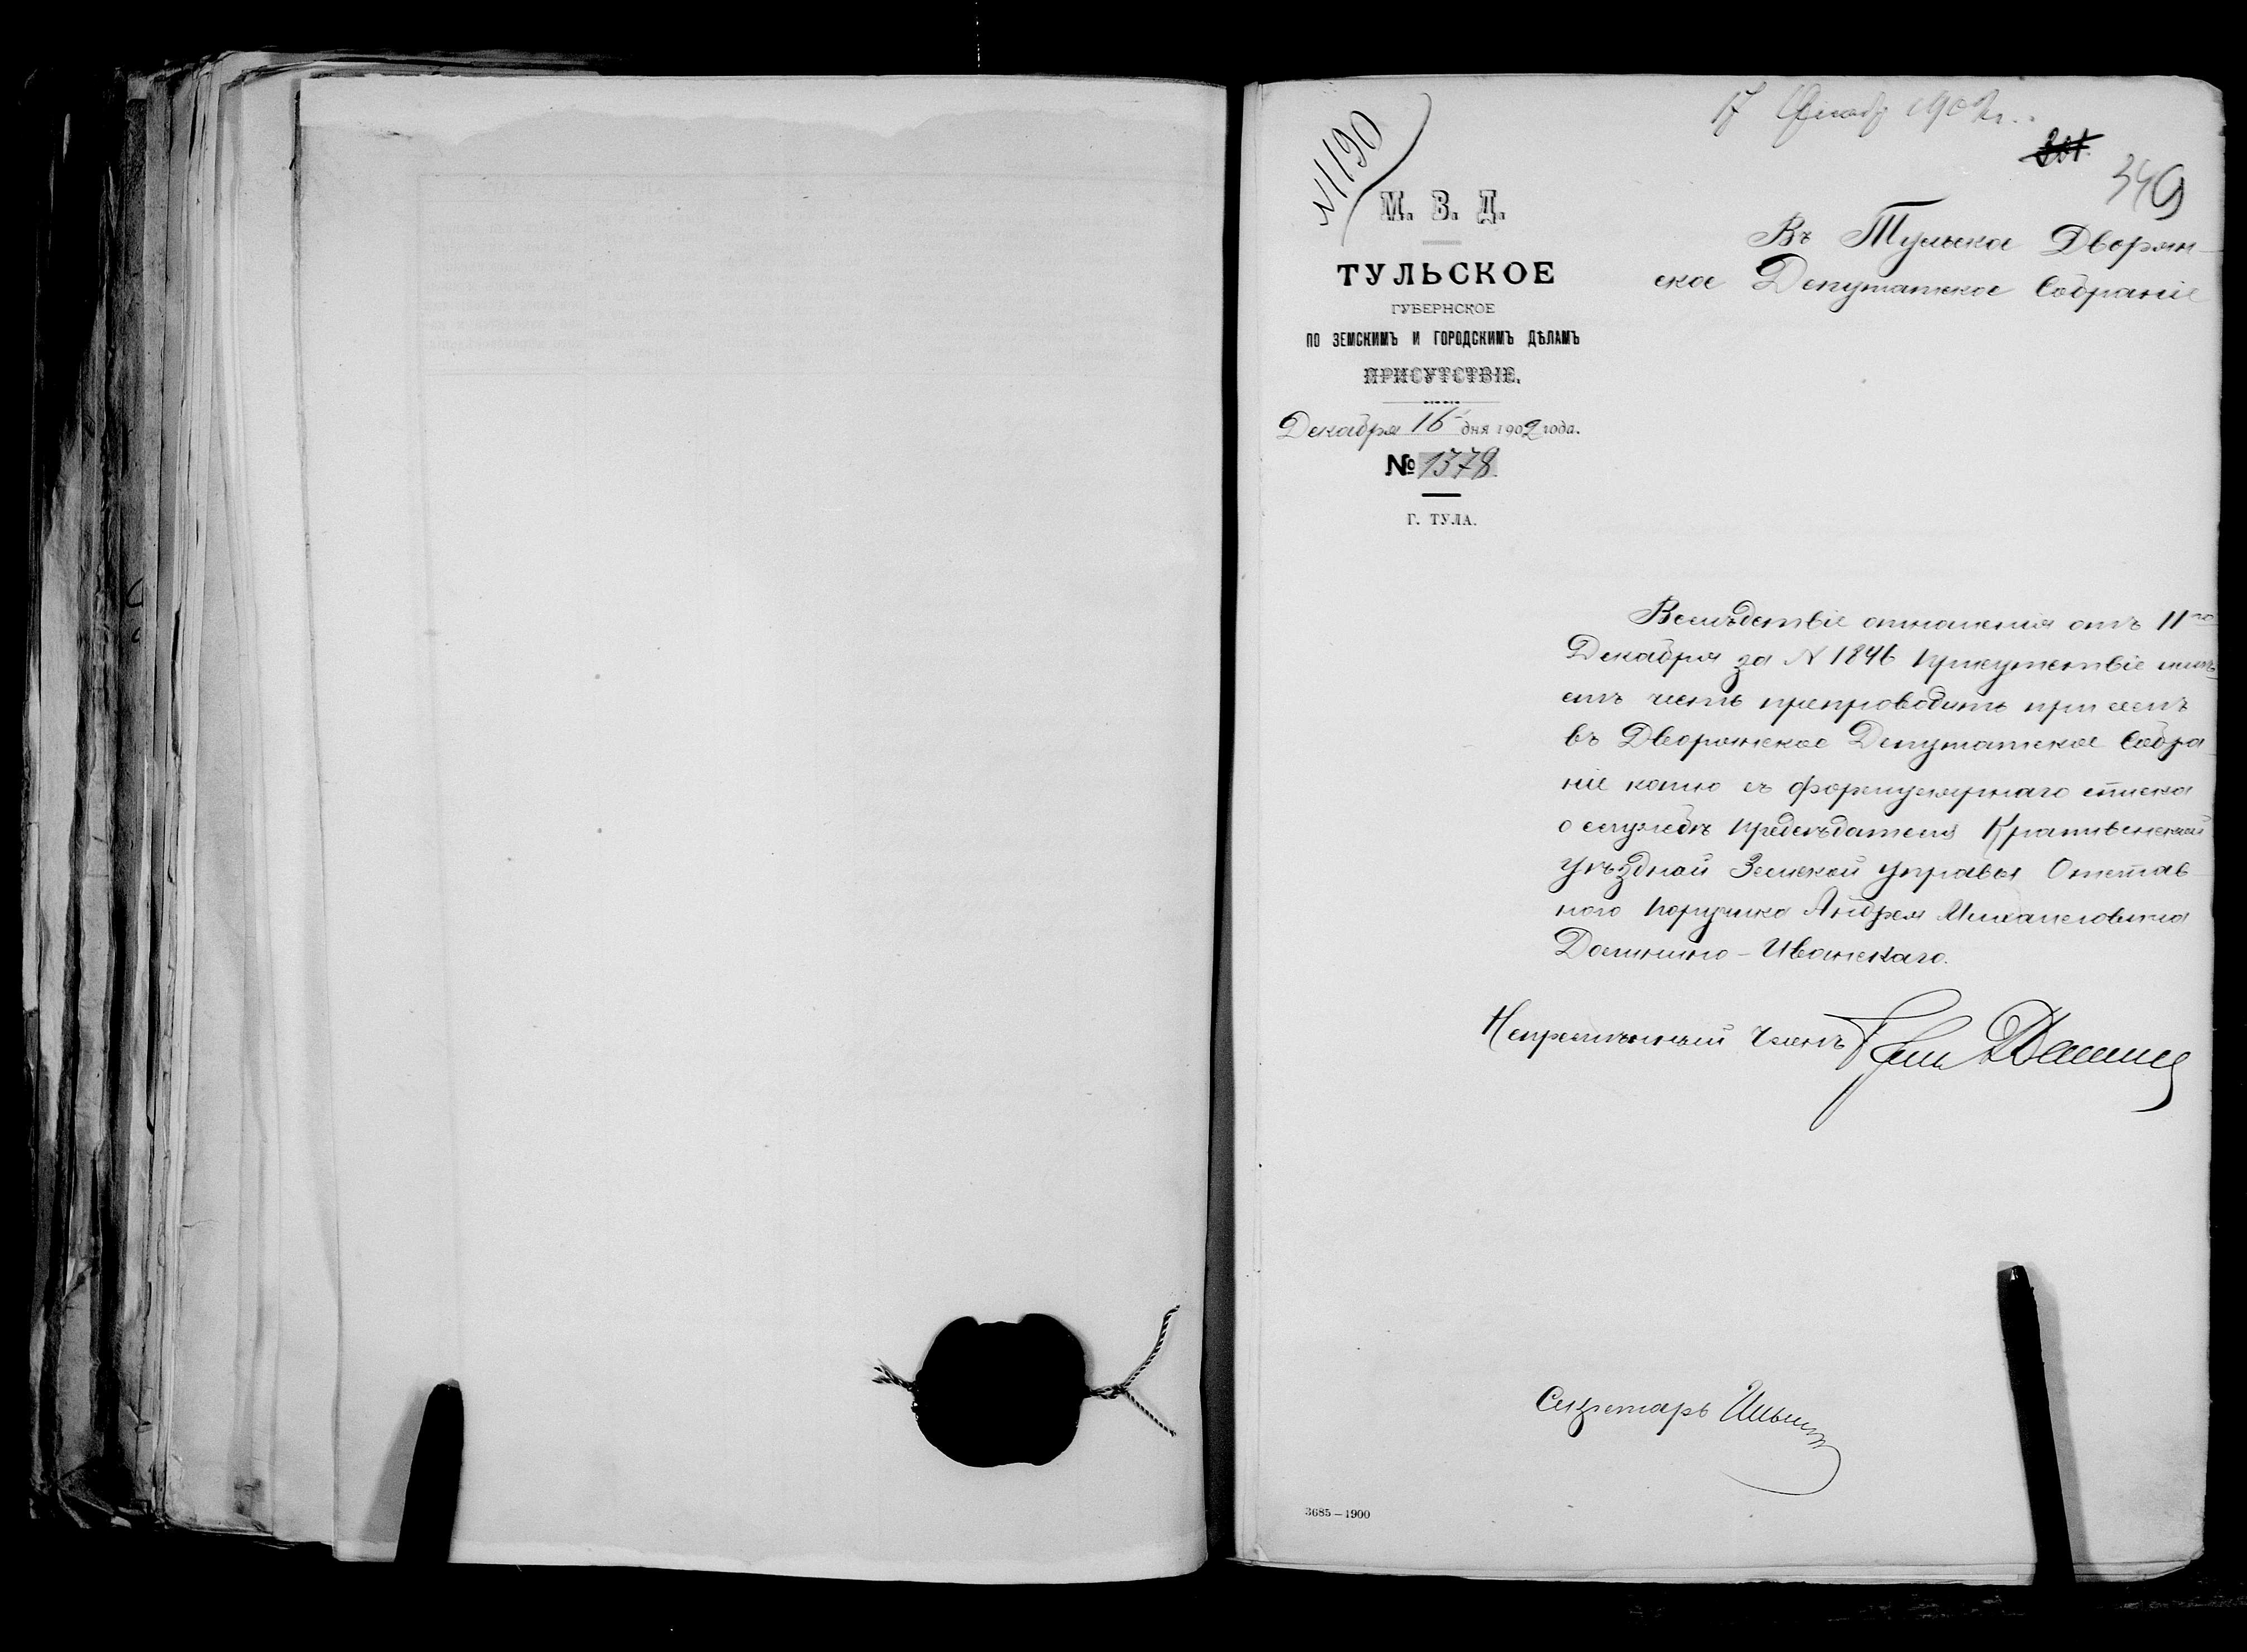 17 Декабр 1902 г.
№ 1190
301.
349
М. В. Д.
ТУЛЬСКОЕ
ГУБЕРНСКОЕ
ПО ЗЕМСКИМЪ И ГОРОДСКИМЪ ДѢЛАМЪ
ПРИСУТСТВІЕ.
Декабря 16 дня 1902 года.
№ 1378
Г. ТУЛА.
Въ Тульское Дворян-
ское Депутатское Собраніе
Вслѣдствіе отношенія отъ 11го
Декабря за N 1846 Присутствіе имѣ-
етъ честь препроводить при семъ
въ Дворянское Депутатское Собра-
ніе копію съ формулярнаго списка
о службѣ Предсѣдателя Крапивенской
Уѣздной Земской Управы Отстав-
ного Поручика Андрея Михаиловича
Долинино-Иванскаго.
Непремѣнный Членъ
Секретарь Ильин
3685—1900